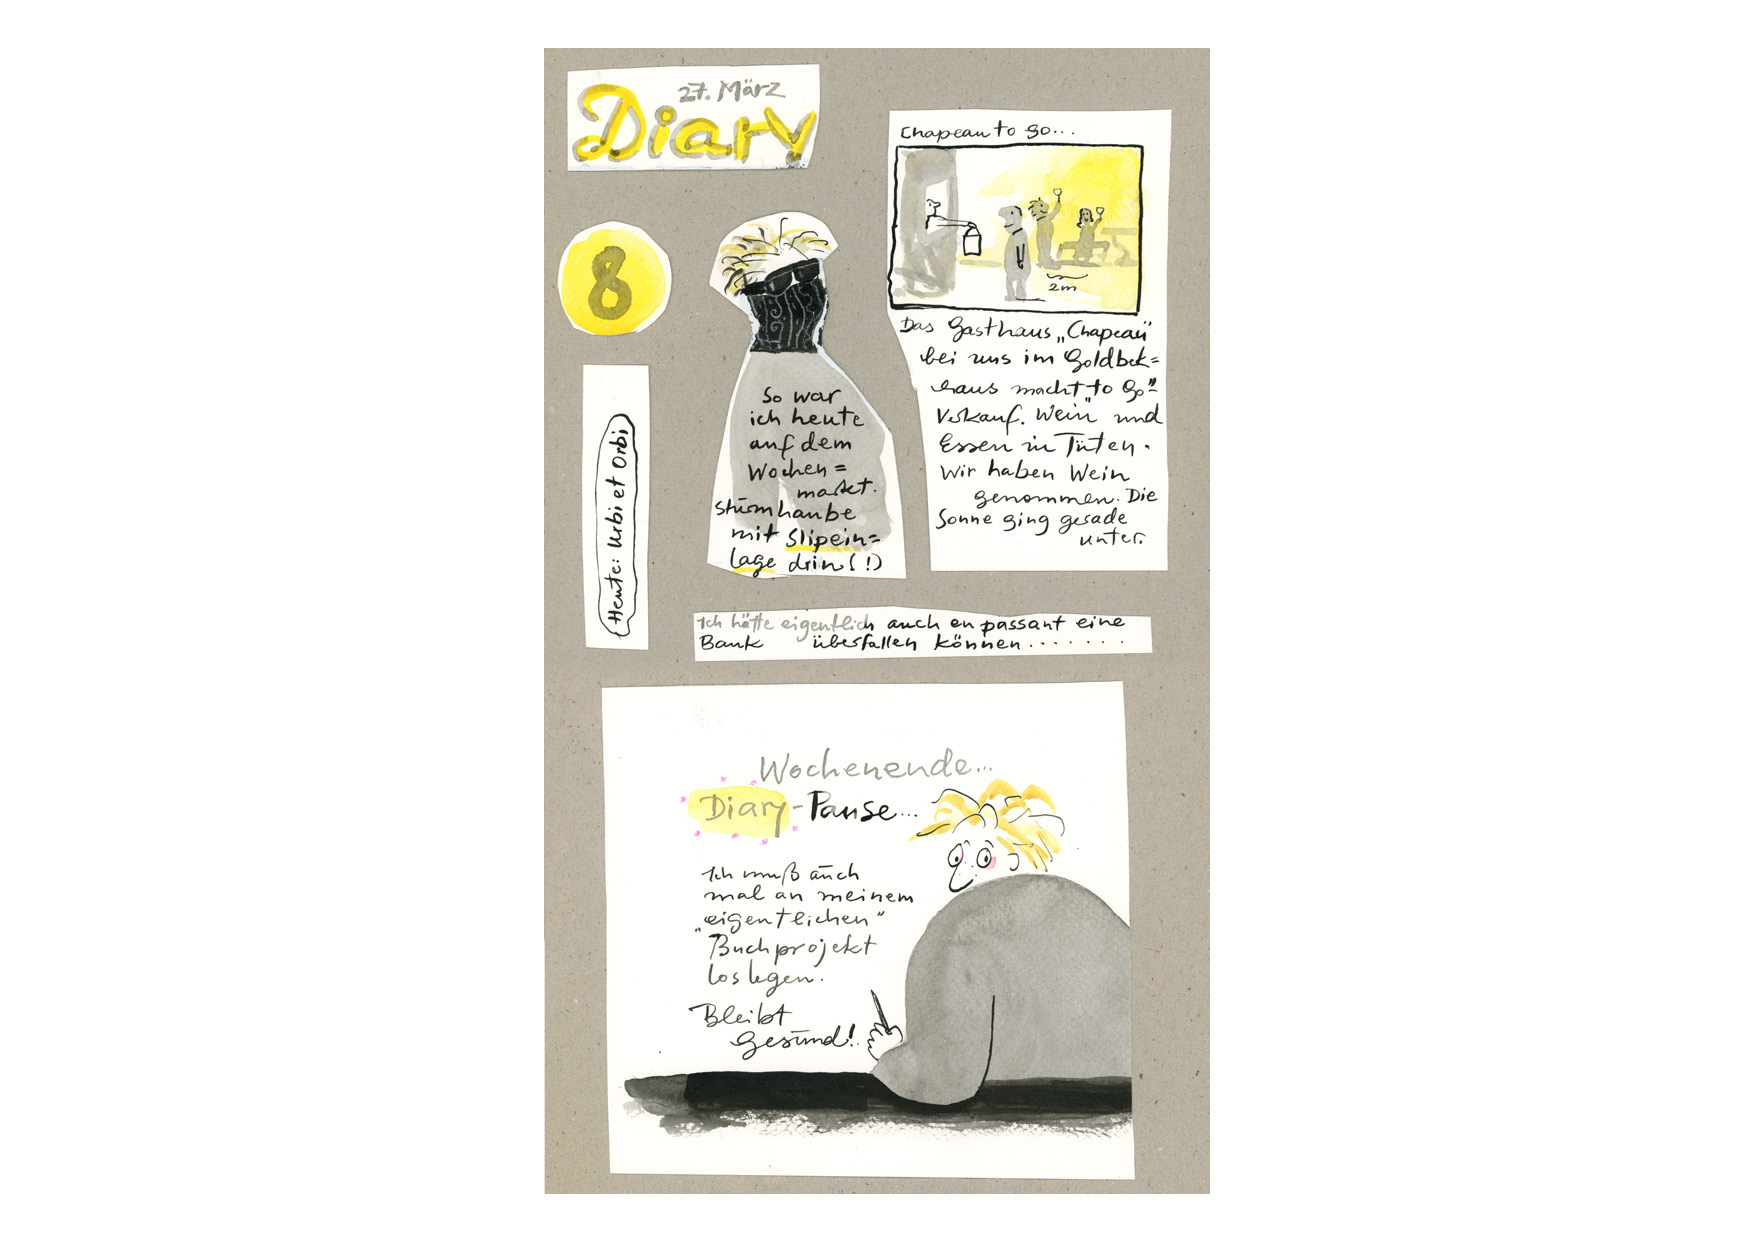 27. März
Diary
8
Heute: Urbi et Orbi
So war
ich heute
auf dem
Wochen=
markt.
Sturmhaube
mit Slipein=
lage drin (!)
Chapeau to go...
2m
Das Gasthaus „Chapeau"
bei uns im Goldbek=
haus macht „to go"=
Verkauf. Wein und
Essen in Tüten.
Wir haben Wein
genommen. Die
Sonne ging gerade
unter.
Ich hätte eigentlich auch en passant eine
Bank überfallen können.......
Wochenende...
Diary-Pause...
Ich muß auch
mal an meinem
„eigentlichen"
Buchprojekt
loslegen.
Bleibt
gesund!